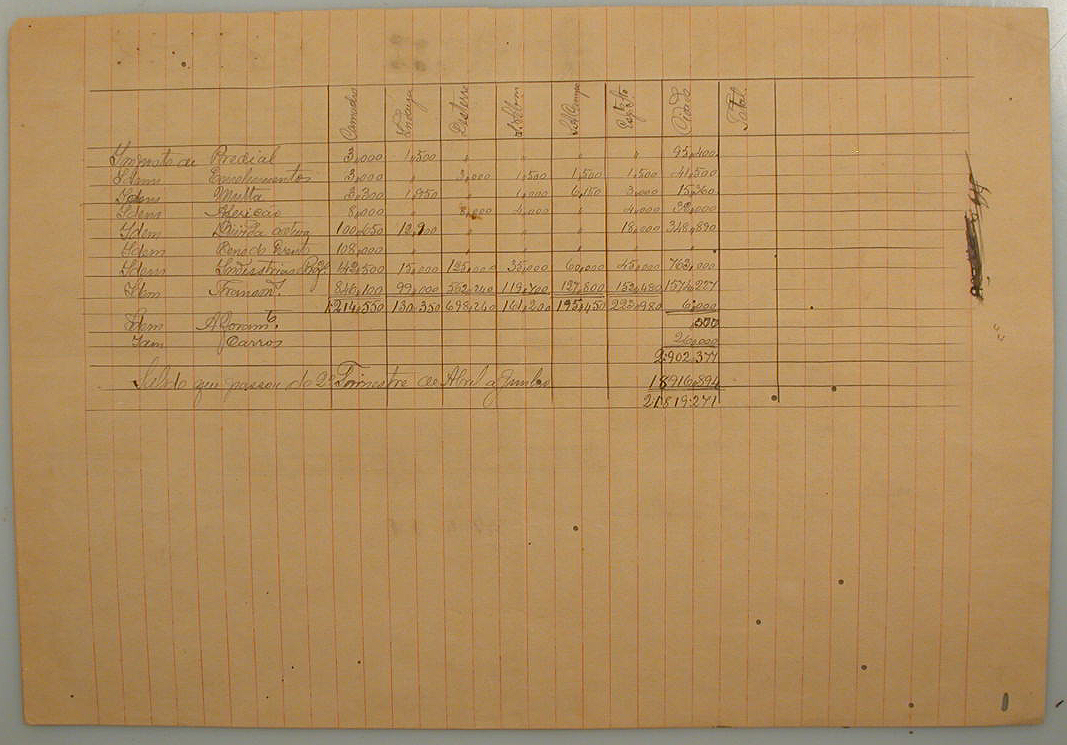 Desterro Cidade Total
Imposto de Predial 3,000 1,500 " " " " 95,400
Idem Emolumentos 3,000 " 3,000 1,500 1,500 1,500 41,500
Idem Multa 3,300 1,950 1,000 6,150 3,000 15,360
Idem Aferição 8,000 " 8,000 4,000 4,000 38,000
Idem Divida activa 100,650 " " " 18,000 348,890
Idem 108,000 " " " "
Idem Industria e Prof. 142,500 15,000 125,000 35,000 60,000 45,000 763,000
Idem 846,100 99,000 562,240 119,700 127,800 152,480
1:214,550 130,350 698,240 161,200 195,450 6,000
Idem Aforamto.
Idem Carros 26,000
2:902,377
Saldo que passou do 2º Trimestre de Abril a Junho 18916,894
21819,271